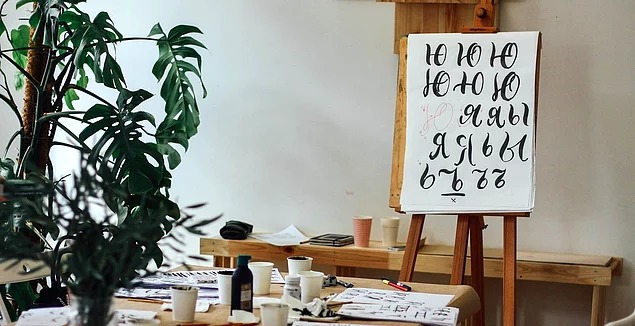 Ю Ю Ю
Ю Ю Ю
Ю Я Я Ы
Я Я Ь Ы
Ь Ъ Ъ Ъ
х